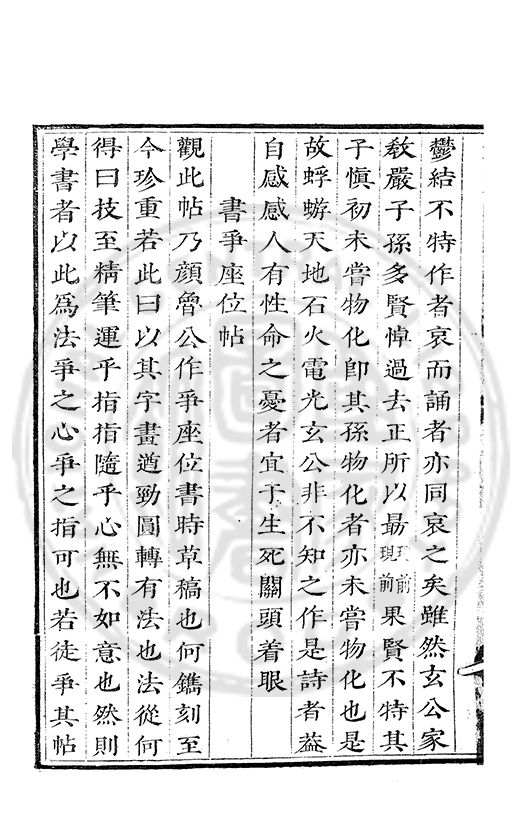 鬱結不特作者哀而誦者亦同哀之矣雖然玄公家
教嚴子孫多賢悼過去正所以勗現前現前果賢不特其
子慎初未嘗物化卽其孫物化者亦未嘗物化也是
故蜉蝣天地石火電光玄公非不知之作是詩者葢
自感感人有性命之憂者宜于生死關頭着眼
書爭座位帖
觀此帖乃顔魯公作爭座位書時草稿也何鐫刻至
今珍重若此曰以其字畫遒勁圓轉有法也法從何
得曰技至精筆運乎指指隨乎心無不如意也然則
學書者以此爲法爭之心爭之指可也若徒爭其帖